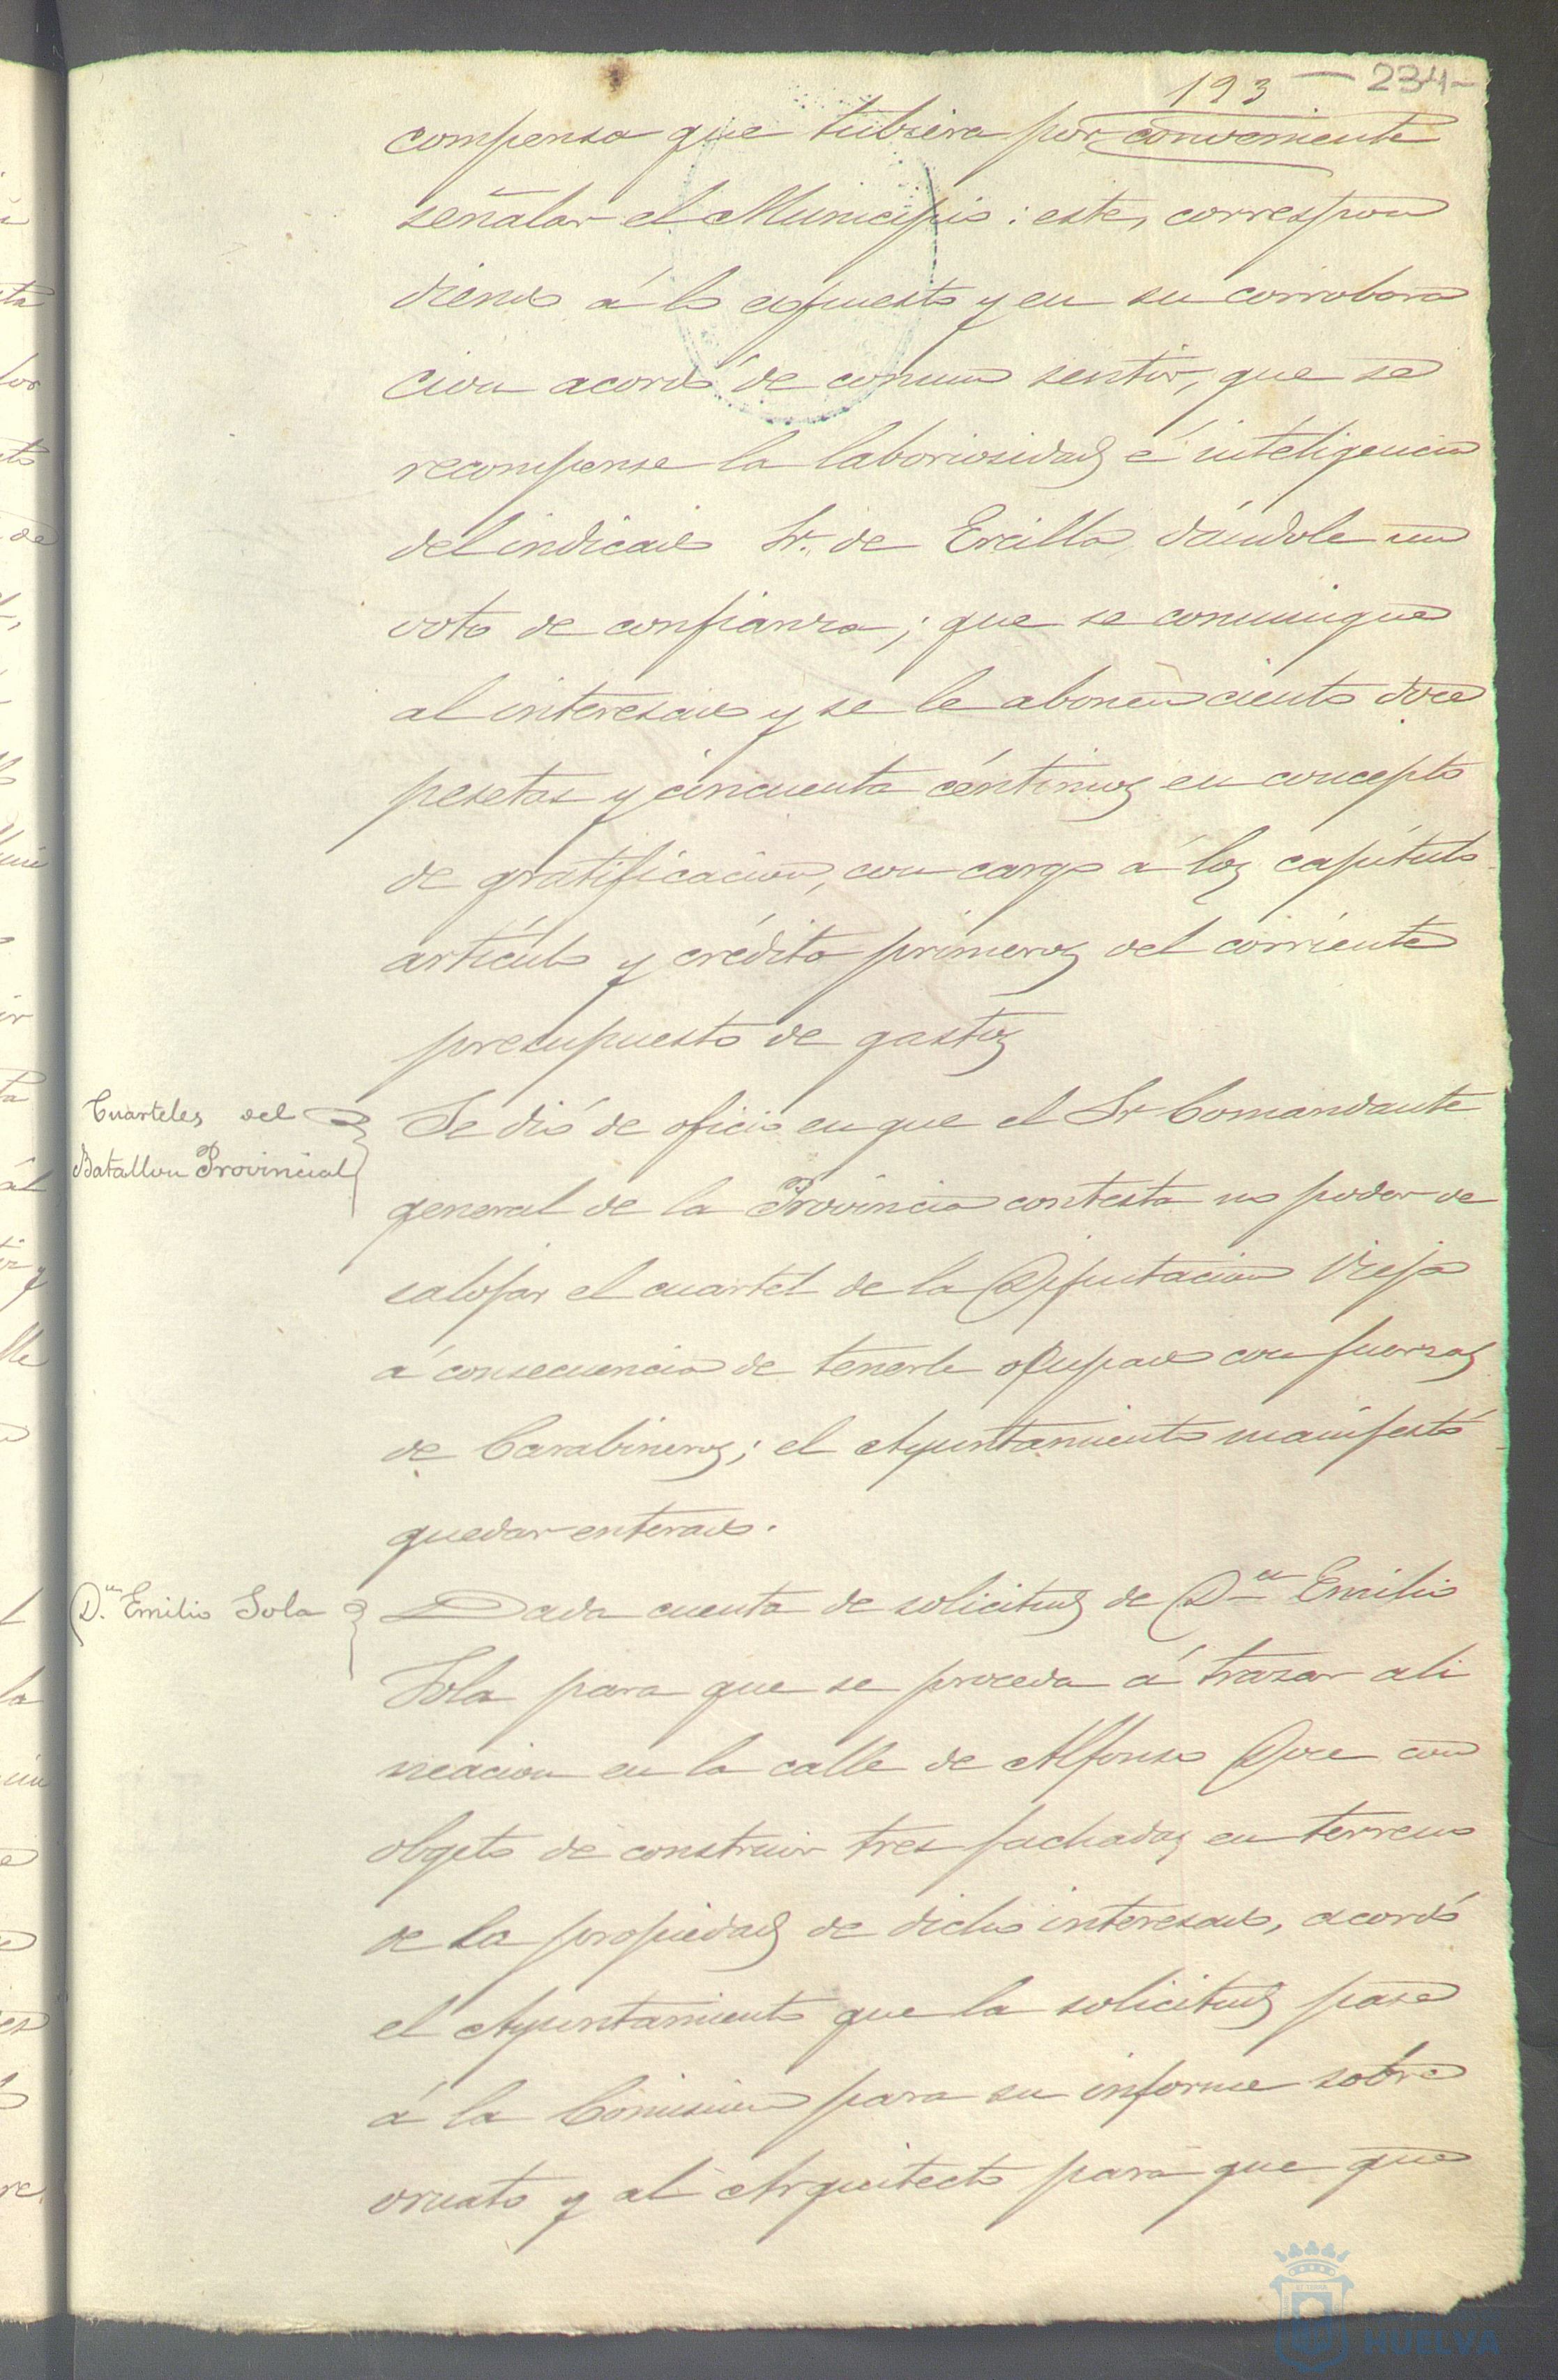 193 — 234 —
compensa que tubiera por conveniente
señalar el Municipio: este, correspon
diendo á lo espuesto y en su corrobora
cion acordó de comun sentir, que se
recompense la laboriosidad é inteligencia
del indicado Sr. de Ercilla dándole un
voto de confianza; que se comunique
al interesado y se le abonen ciento doce
pesetas y cincuenta céntimos en concepto
de gratificacion, con cargo á los capítulo
artículo y crédito primeros del corriente
presupuesto de gastos
Cuarteles del
Batallon Provincial
Se dió de oficio en que el Sr Comandante
general de la Provincia contesta no poder de
salojar el cuartel de la Diputacion Vieja
á consecuencia de tenerle ocupado con fuerzas
de Carabineros; el Ayuntamiento manifestó
quedar enterado.
D.n Emilio Sola
Dada cuenta de solicitud de Dn Emilio
Sola para que se proceda á trazar ali
neacion en la calle de Alfonso Doce con
obgeto de construir tres fachadas en terreno
de la propiedad de dicho interesado, acordó
el Ayuntamiento que la solicitud pase
á la Comision para su informe sobre
ornato y al Arquitecto para que que
HUELVA